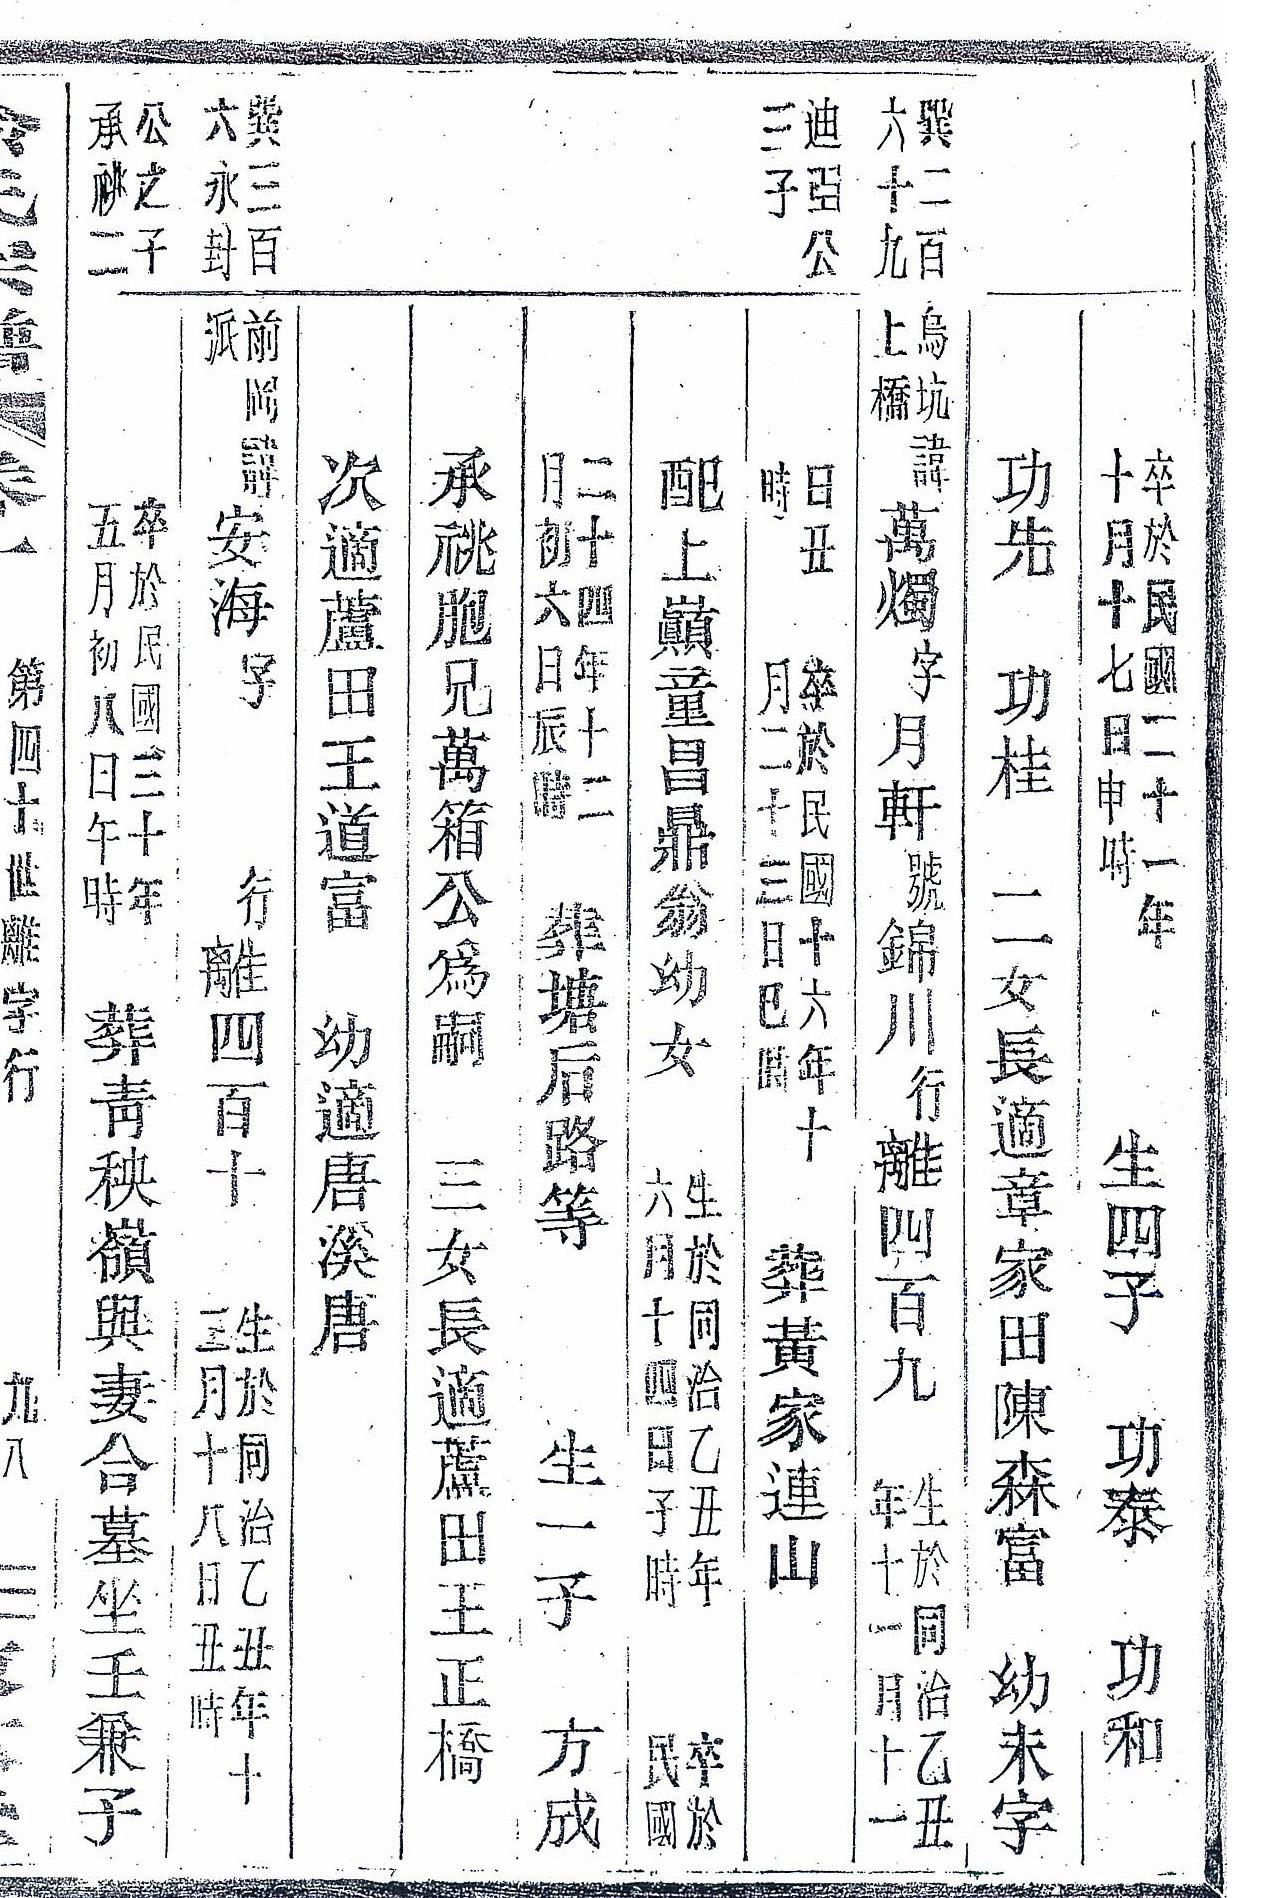 卒於民國二十一年
十月十七日申時
生四子 功泰 功和
功先 功桂 二女長適章家田陳森富 幼未字
巽二百
六十九
烏坑
上橋
諱萬燭字月軒號錦川行離四百九
生於同治乙丑
年十一月十一
迪亞公
三子
日丑
時
卒於民國十六年十
月二十三日巳時
葬黃家連山
配上巔童昌鼎翁幼女
生於同治乙丑年
六月十四日子時
卒於
民國
二十四年十二
月初六日辰時
葬塘后路等 生一子 方成
承祧胞兄萬箱公爲嗣 三女長適蘆田王正橋
次適蘆田王道富 幼適唐溪唐
巽三百
六永封
前岡
派
諱安海字 行離四百十
生於同治乙丑年十
三月十八日丑時
公之子
承祧二
卒於民國三十年
五月初八日午時
葬靑秧嶺與妻合墓坐壬兼子
氏宗譜 卷 第四十世離字行 九八